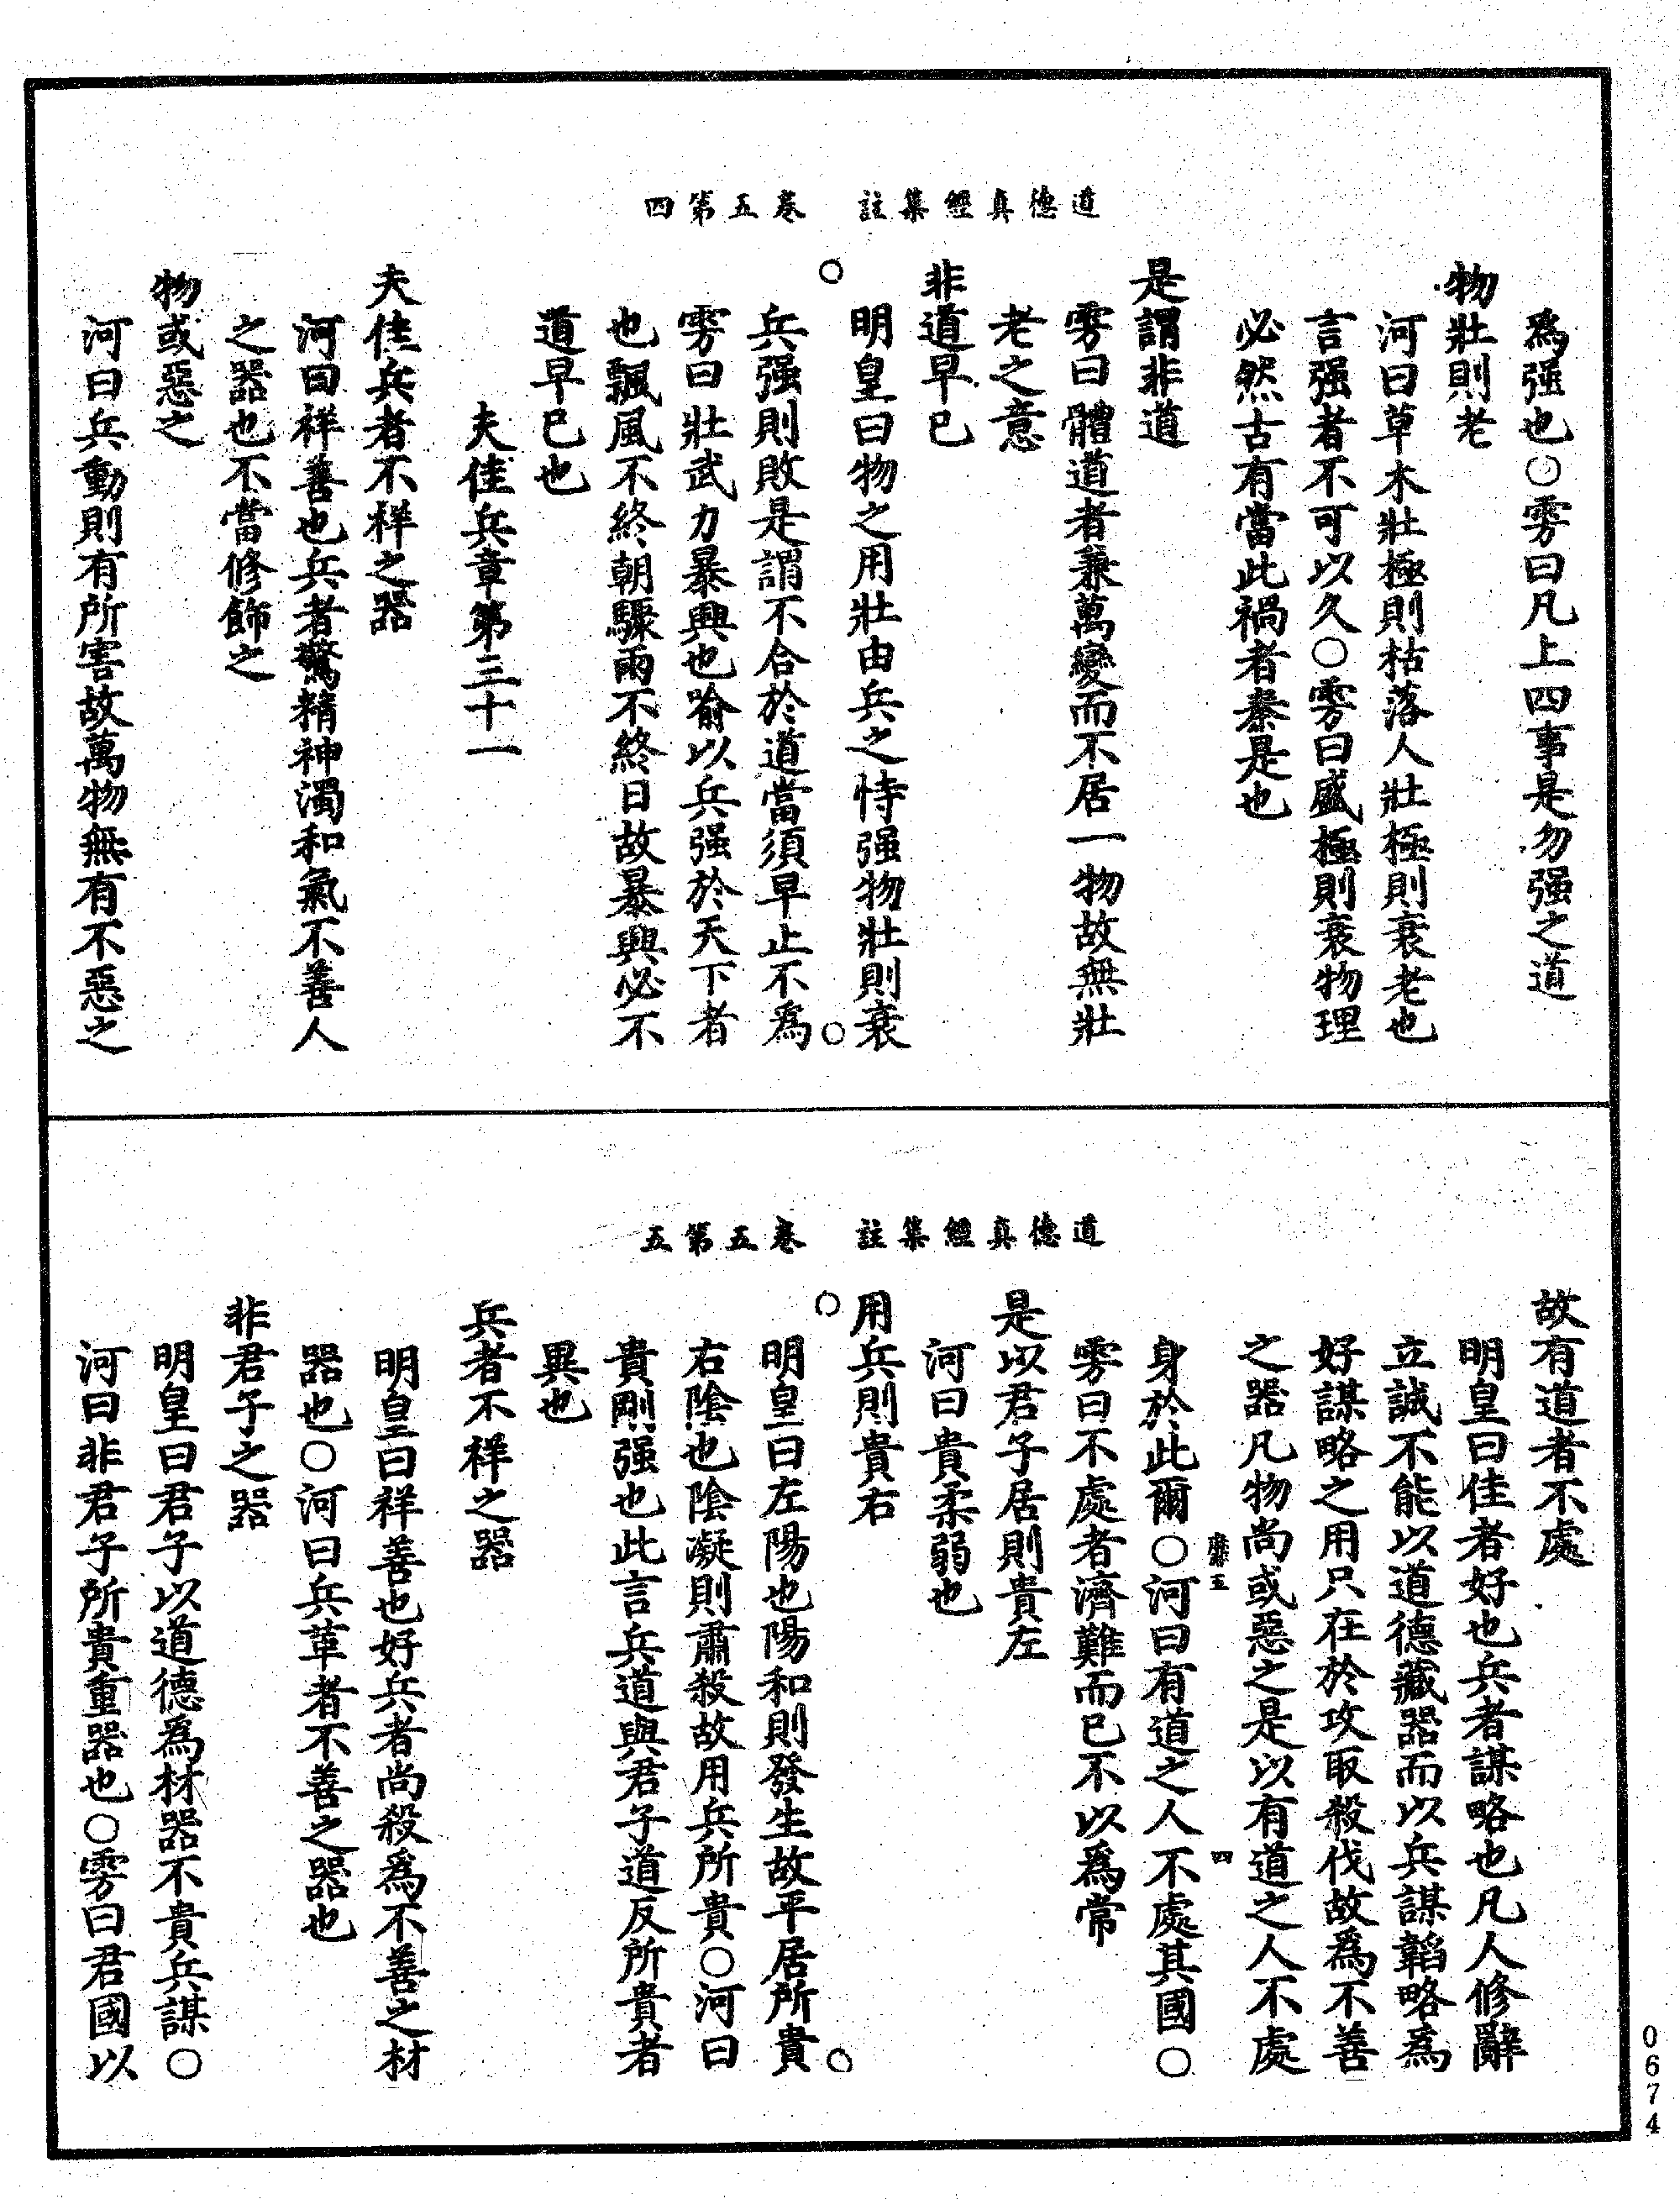 道德真經集註　卷五第四
爲强也○雱曰凡上四事是勿强之道
物壯則老
河曰草木壯極則枯落人壯極則衰老也
言强者不可以久○雱曰盛極則衰物理
必然古有當此禍者秦是也
是謂非道
雱曰體道者兼萬變而不居一物故無壯
老之意
非道早已
明皇曰物之用壯由兵之恃强物壯則衰
○　○
兵强則敗是謂不合於道當須早止不爲
雱曰壯武力暴興也喻以兵强於天下者
也飄風不終朝驟雨不終日故暴興必不
道早已也
夫佳兵章第三十一
夫佳兵者不祥之器
河曰祥善也兵者驚精神濁和氣不善人
之器也不當修飾之
物或惡之
河曰兵動則有所害故萬物無有不惡之
道德真經集註　卷五第五
故有道者不處
明皇曰佳者好也兵者謀略也凡人修辭
立誠不能以道德藏器而以兵謀韜略爲
好謀略之用只在於攻取殺伐故爲不善
之器凡物尚或惡之是以有道之人不處
五　四
身於此爾○河曰有道之人不處其國○
雱曰不處者濟難而已不以爲常
是以君子居則貴左
河曰貴柔弱也
用兵則貴右
○　○
明皇曰左陽也陽和則發生故平居所貴
右陰也陰凝則肅殺故用兵所貴○河曰
貴剛强也此言兵道與君子道反所貴者
異也
兵者不祥之器
明皇曰祥善也好兵者尚殺爲不善之材
器也○河曰兵革者不善之器也
非君子之器
明皇曰君子以道德爲材器不貴兵謀○
河曰非君子所貴重器也○雱曰君國以
0674